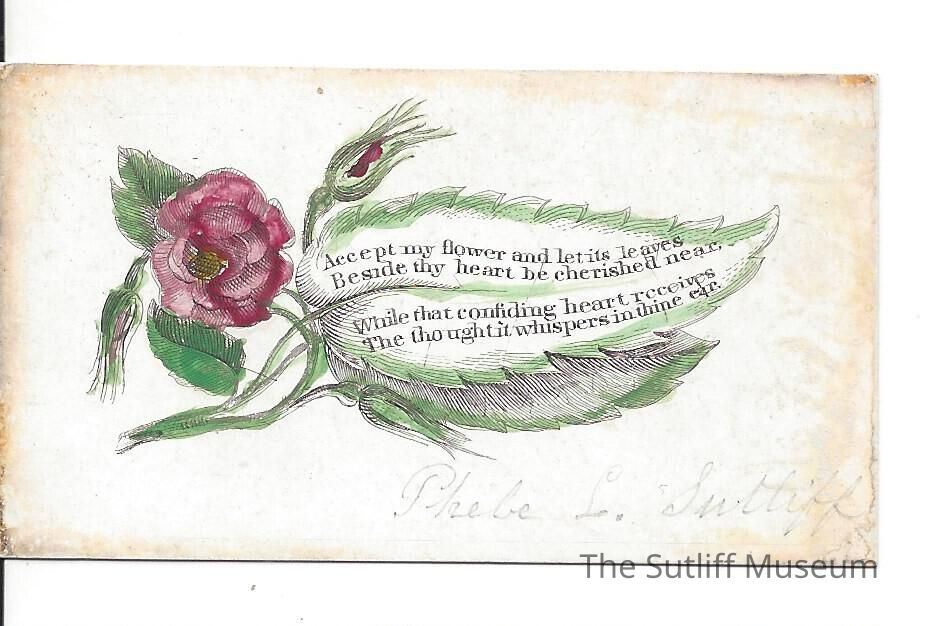 Accept my flower and let its leaves
Beside thy heart be cherished near,
While that confiding heart receives
The thought it whispers in thine ear.
Phebe L. Sutliff
The Sutliff Museum